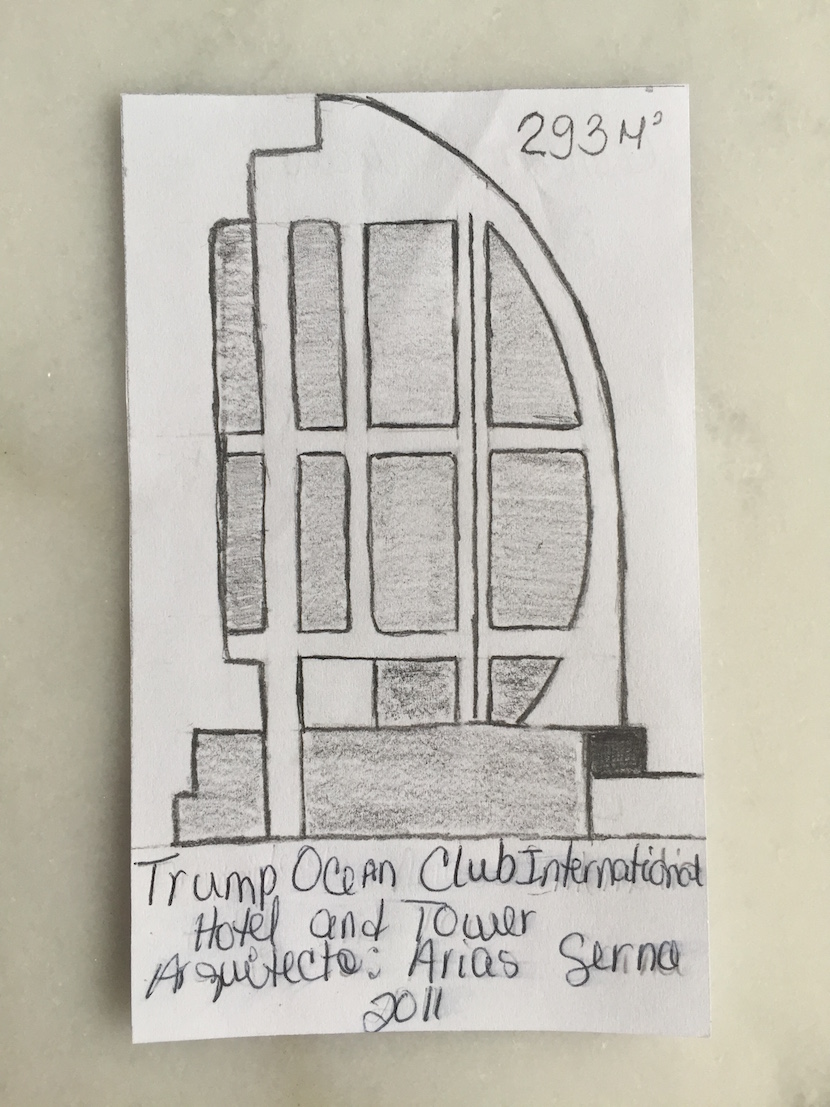 293 M²
Trump Ocean Club International
Hotel and Tower
Arquitecto: Arias Serna
2011